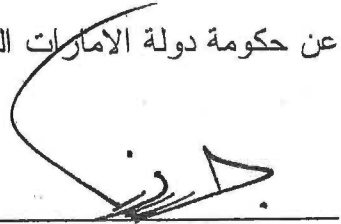 عن حكومة دولة الامارات ال